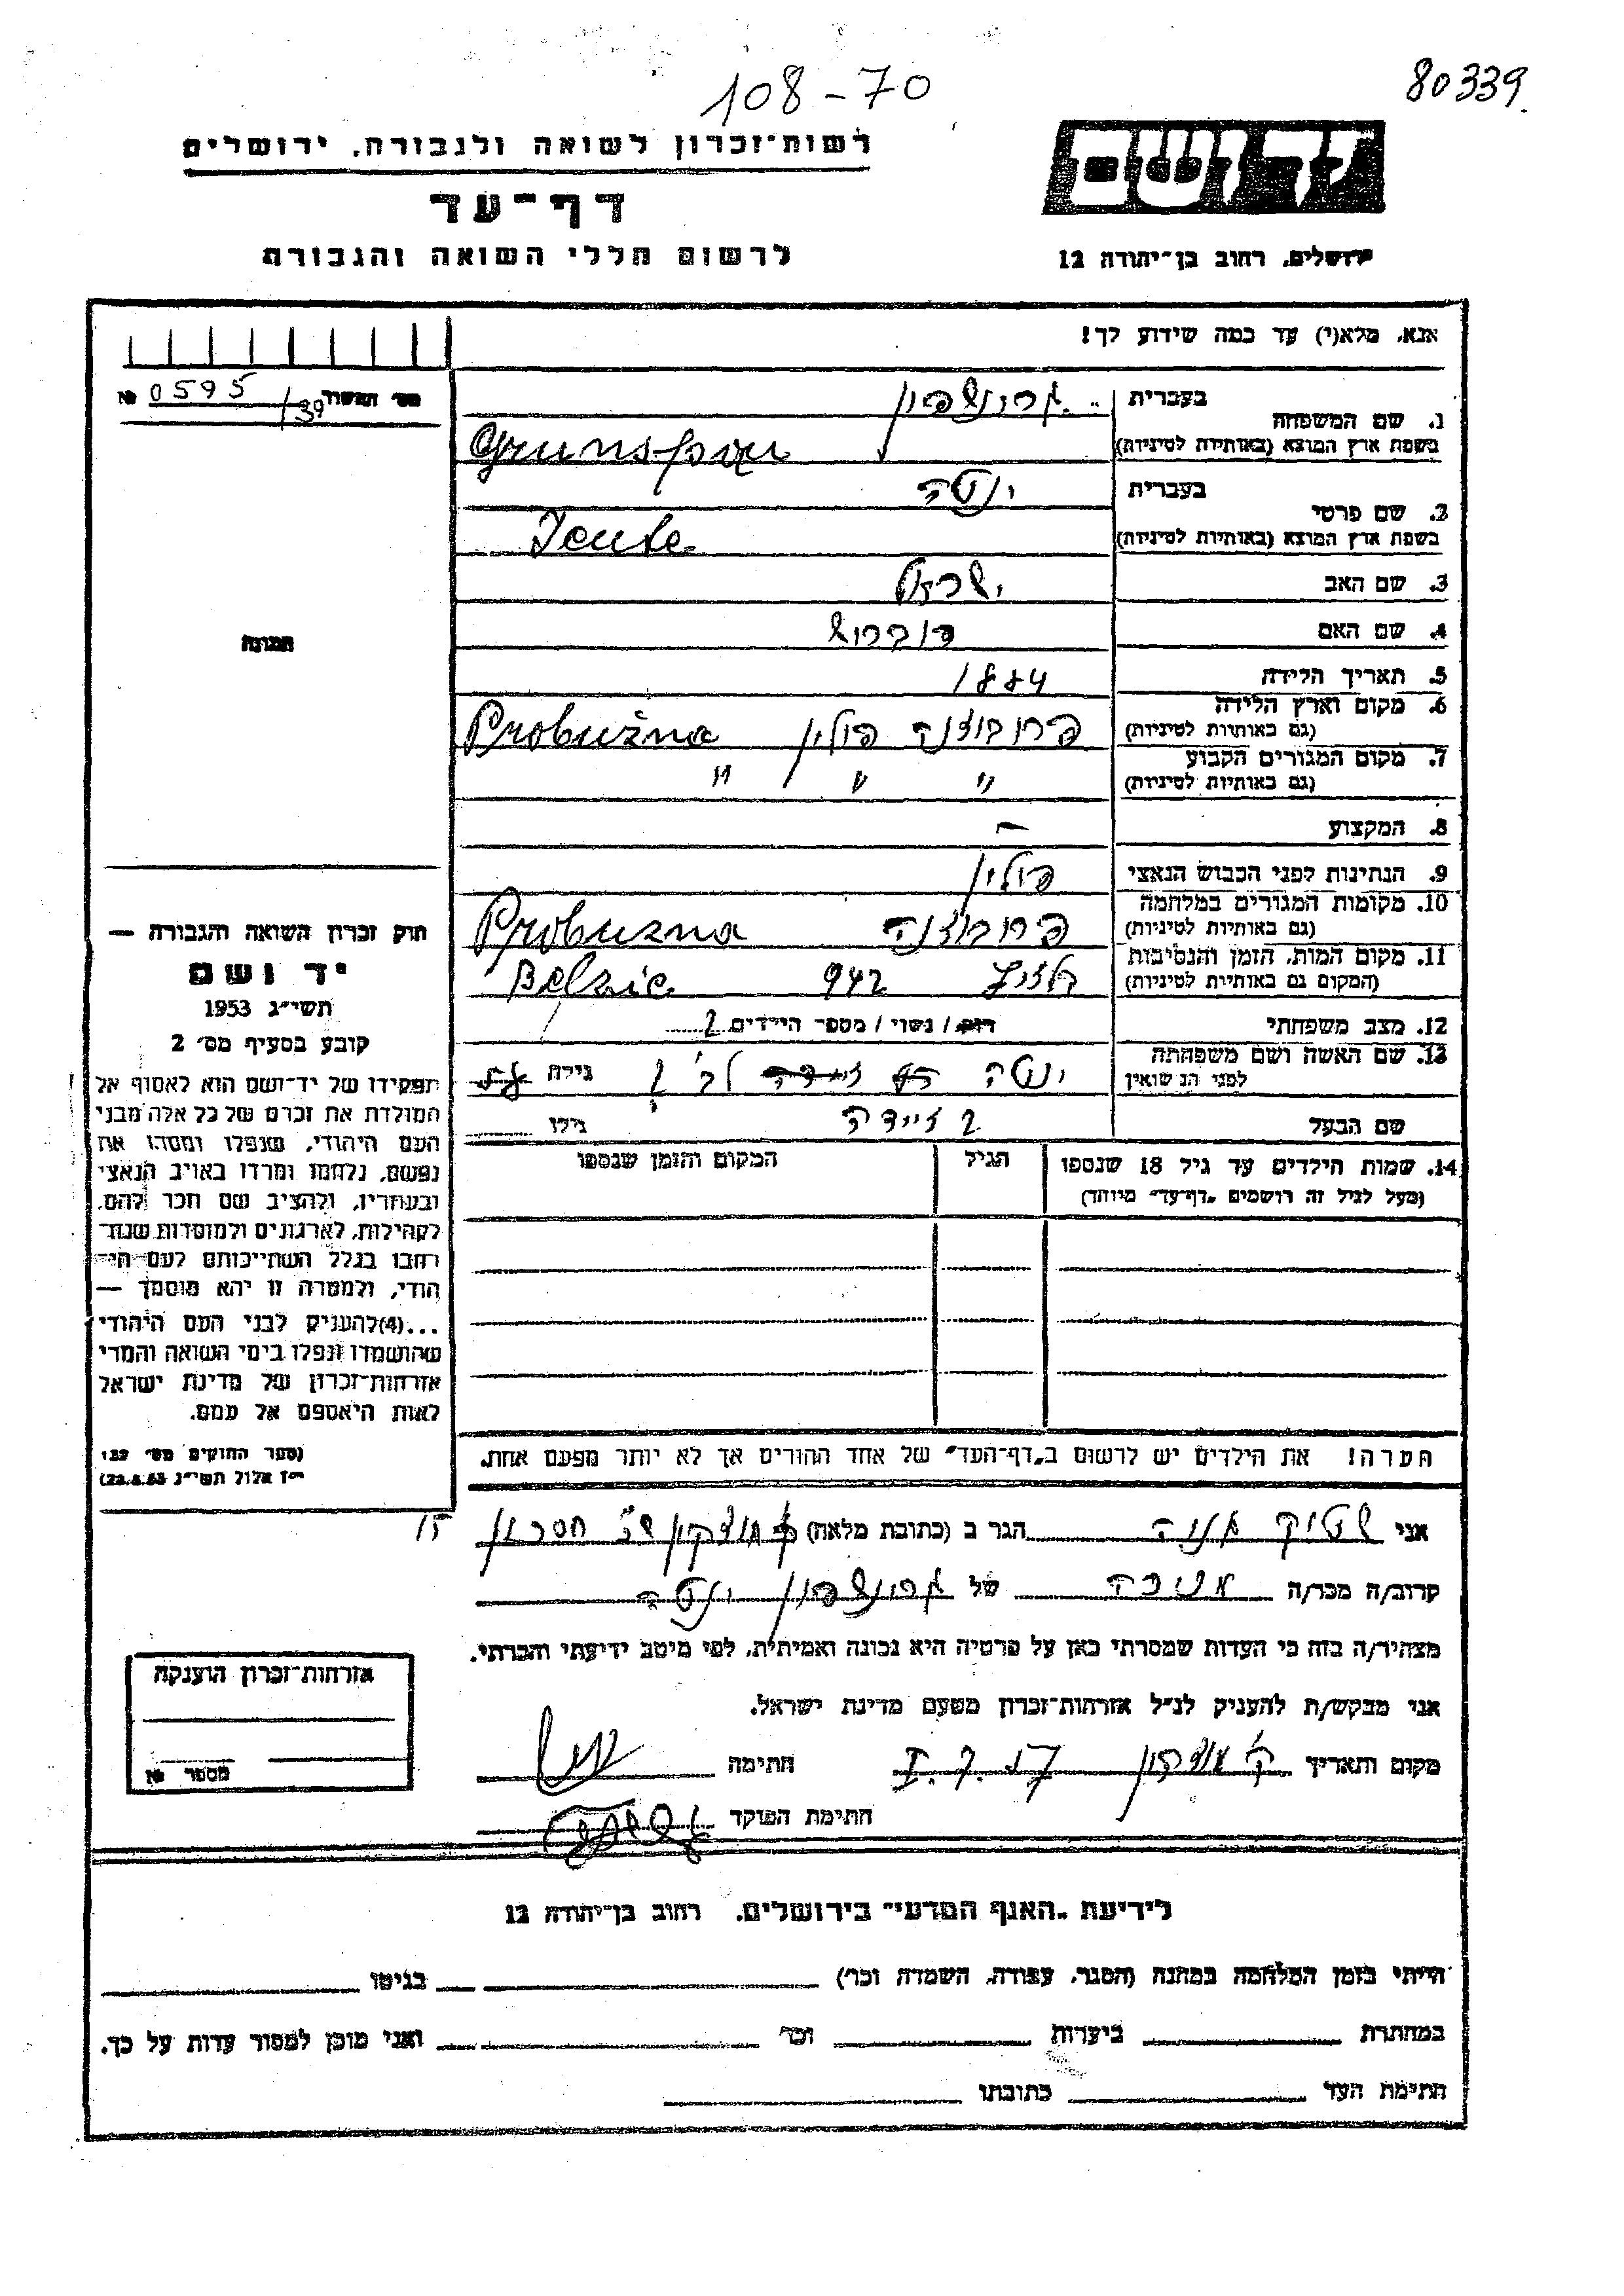 108-70
80339
רשות-זכרון לשואה ולגבורה, ירושלים
יד ושם
דף-עד
לרשום חללי השואה והגבורה
ירושלים, רחוב בן-יהודה 12
אנא, מלא(י) עד כמה שידוע לך!
מס' תמשור 0595/39 №
1. שם המשפחה
בעברית גרונשפון
בשפת ארץ המוצא (באותיות לטיניות) Grunspan
2. שם פרטי
בעברית ינטה
בשפת ארץ המוצא (באותיות לטיניות) Jente
3. שם האב ישראל
4. שם האם דוברוש
5. תאריך הלידה 1884
6. מקום וארץ הלידה
(גם באותיות לטיניות) פרובוזנה פולין Probużna
7. מקום המגורים הקבוע
(גם באותיות לטיניות) " " "
8. המקצוע –
9. הנתינות לפני הכבוש הנאצי פולין
10. מקומות המגורים במלחמה
(גם באותיות לטיניות) פרובוזנה Probuzna
11. מקום המות, הזמן והנסיבות
(המקום גם באותיות לטיניות) בלזיץ 942 Belzic
12. מצב משפחתי רוק / נשוי / מספר הילדים 2
13. שם האשה ושם משפחתה
לפני הנשואין ינטה גילה
שם הבעל זיידה גילו
תמונה
חוק זכרון השואה והגבורה —
יד ושם
תשי"ג 1953
קובע בסעיף מס' 2
תפקידו של יד-ושם הוא לאסוף אל
המולדת את זכרם של כל אלה מבני
העם היהודי, שנפלו ומסרו את
נפשם, נלחמו ומרדו באויב הנאצי
ובעוזריו, ולהציב שם וזכר להם,
לקהילות, לארגונים ולמוסדות שנח-
רבו בגלל השתייכותם לעם הי-
הודי, ולמטרה זו יהא מוסמך —
...(4) להעניק לבני העם היהודי
שהושמדו ונפלו בימי השואה והמרי
אזרחות-זכרון של מדינת ישראל
לאות היאספם אל עמם.
(ספר החוקים מס' 132
י"ז אלול תשי"ג 28.8.53)
14. שמות הילדים עד גיל 18 שנספו
(מעל לגיל זה רושמים "דף-עד" מיוחד)
הגיל
המקום והזמן שנספו
הערה! את הילדים יש לרשום ב"דף-העד" של אחד ההורים אך לא יותר מפעם אחת.
אני שטוק הגר ב (כתובת מלאה) ק מוצקין 15
קרוב/ה מכר/ה של גרונשפון ינטה
מצהיר/ה בזה כי העדות שמסרתי כאן על פרטיה היא נכונה ואמיתית, לפי מיטב ידיעתי והכרתי.
אני מבקש/ת להעניק לנ"ל אזרחות-זכרון מטעם מדינת ישראל.
מקום ותאריך ק' מוצקין חתימה
חתימת הפוקד
אזרחות-זכרון הוענקה
מספר №
לידיעת "האגף המדעי" בירושלים, רחוב בן-יהודה 12
הייתי בזמן המלחמה במחנה (הסגר, עבודה, השמדה וכו') בגיטו
במחתרת ביערות וכו' ואני מוכן למסור עדות על כך.
חתימת העד כתובתו